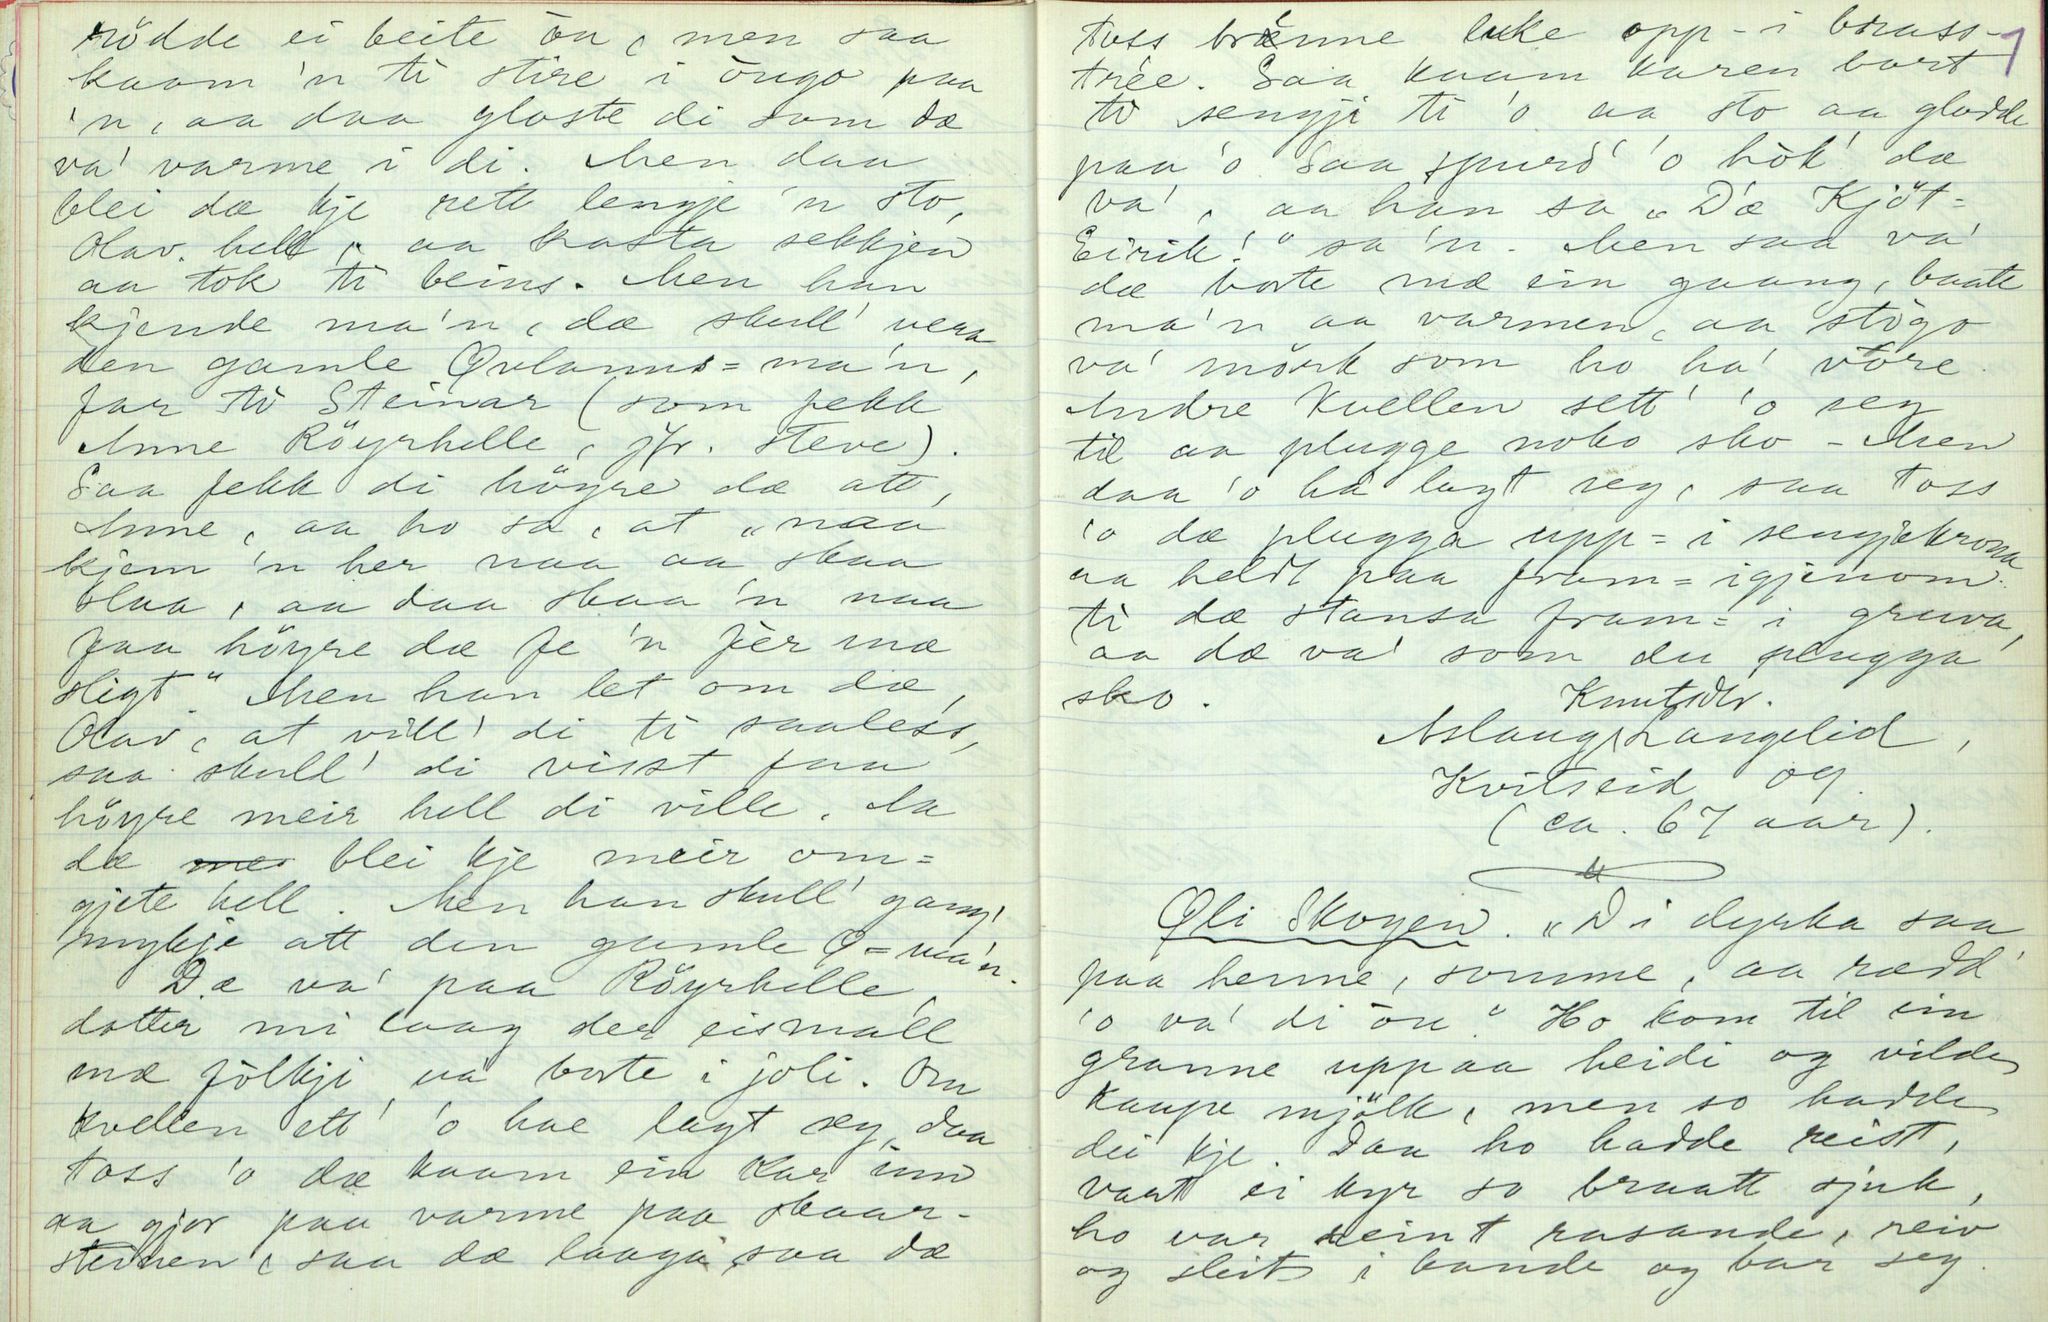 rödde ei beite ôn, men saa
kaam 'n ti stire i ôugo paa
'n, aa daa gloste di som dæ
va' varme i di. Men daa
blei dæ kje rett lengje 'n sto,
Olav. hell, aa kasta sekkjen
aa tok ti beins. Men han
kjende ma'n, dæ skull' vera
den gamle Øvlanns=ma'n,
far ti Steinar (som fekk
Anne Röyrhelle, jfr. steve).
Saa fekk di höyre dæ att,
Anne, aa ho sa, at „naa
kjem 'n her naa aa skaa
slaa, aa daa skaa 'n naa
faa höyre dæ fe 'n fèr mæ
sligt." Men han let om dæ,
Olav, at vill' di ti saaless,
saa skull' di visst faa
höyre meir hell di ville. Aa
dæ blei kje meir om=
gjete hell. Men han skull' gang'
mykje att den gamle Ø=ma'n.
Dæ va' paa Röyrhelle,
dotter mi laag der eismall
mæ fölkji va borte i joli. Om
kvellen ett' 'o hae lagt seg, daa
toss 'o dæ kaam ein kar inn
aa gjor paa varme paa skaar-
steinen, saa dæ laaga, saa dæ
toss brænne like opp-i brass-
trée. Saa kaam karen bort
ti sengji ti 'o aa sto aa glodde
paa 'o. Saa spurd' 'o hôk' dæ
va', aa han sa „D'æ Kjöt=
Eirik!" sa 'n. Men saa va'
dæ borte mæ ein gaang, baate
ma'n aa varmen, aa stôgo
va' mörk som ho ha' vôre.
Andre kvellen sett' 'o seg
til aa plugge noko sko - Men
daa 'o ha lagt seg, saa toss
'o dæ plugga upp=i sengjekrona
aa heldt paa fram=igjenom
ti dæ stansa fram=i gruva,
aa dæ va' som du plugga
sko.
Knutsdtr.
Aslaug Langelid,
Kvitseid og
(ca. 67 aar).
Øli Skogen. „Di dyrka saa
paa henne, somme, aa rædd'
'o va' di ôn." Ho kom til ein
granne uppaa heidi og vilde
kaupe mjölk, men so hadde
dei kje. Daa ho hadde reist,
vart ei kyr so braatt sjuk,
ho var reint rasande, reiv
og sleit i bande og bar seg.
1